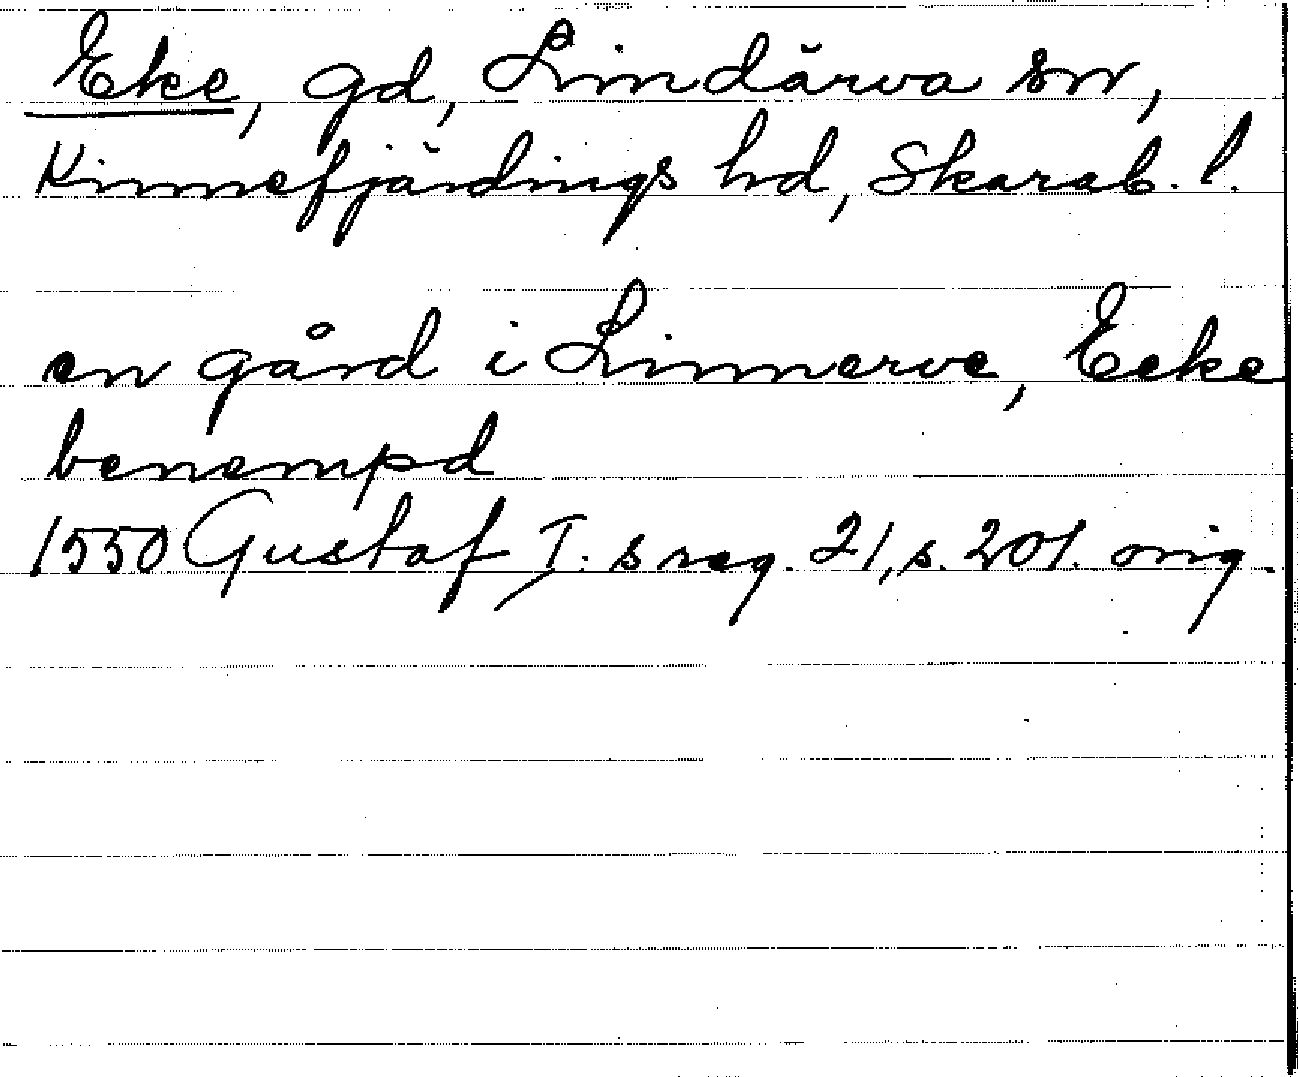 Eke, gd, Lindärva sn,
Kinnefjärdings hd, Skarab. l.
en gård i Linnerve, Ecke
benempd
1550 Gustaf I:s reg. 21, s. 201. orig.